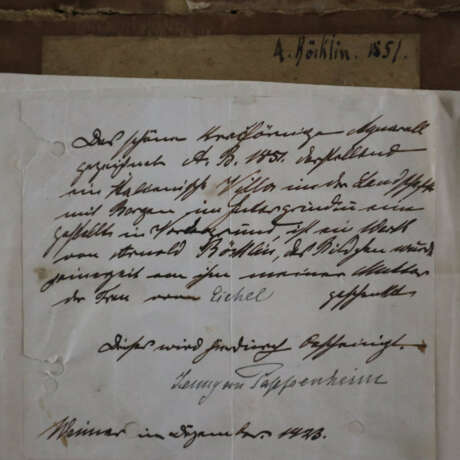 A. Böcklin. 1851.
Das schöne kreisförmige Aquarell
gezeichnet A. B. 1851. darstellend
ein Italienische Villa in der Landschaft
mit Bergen im Hintergrunde ein
Gestalt in Vordergrund ist ein Werk
von Arnold Böcklin, des Bildchen wurde
seinerzeit von ihm meiner Mutter
der Frau vom Eichel geschenkt.
Dieses wird hierdurch bescheinigt.
Jenny von Pappenheim
Weimar im Dezember. 1923.